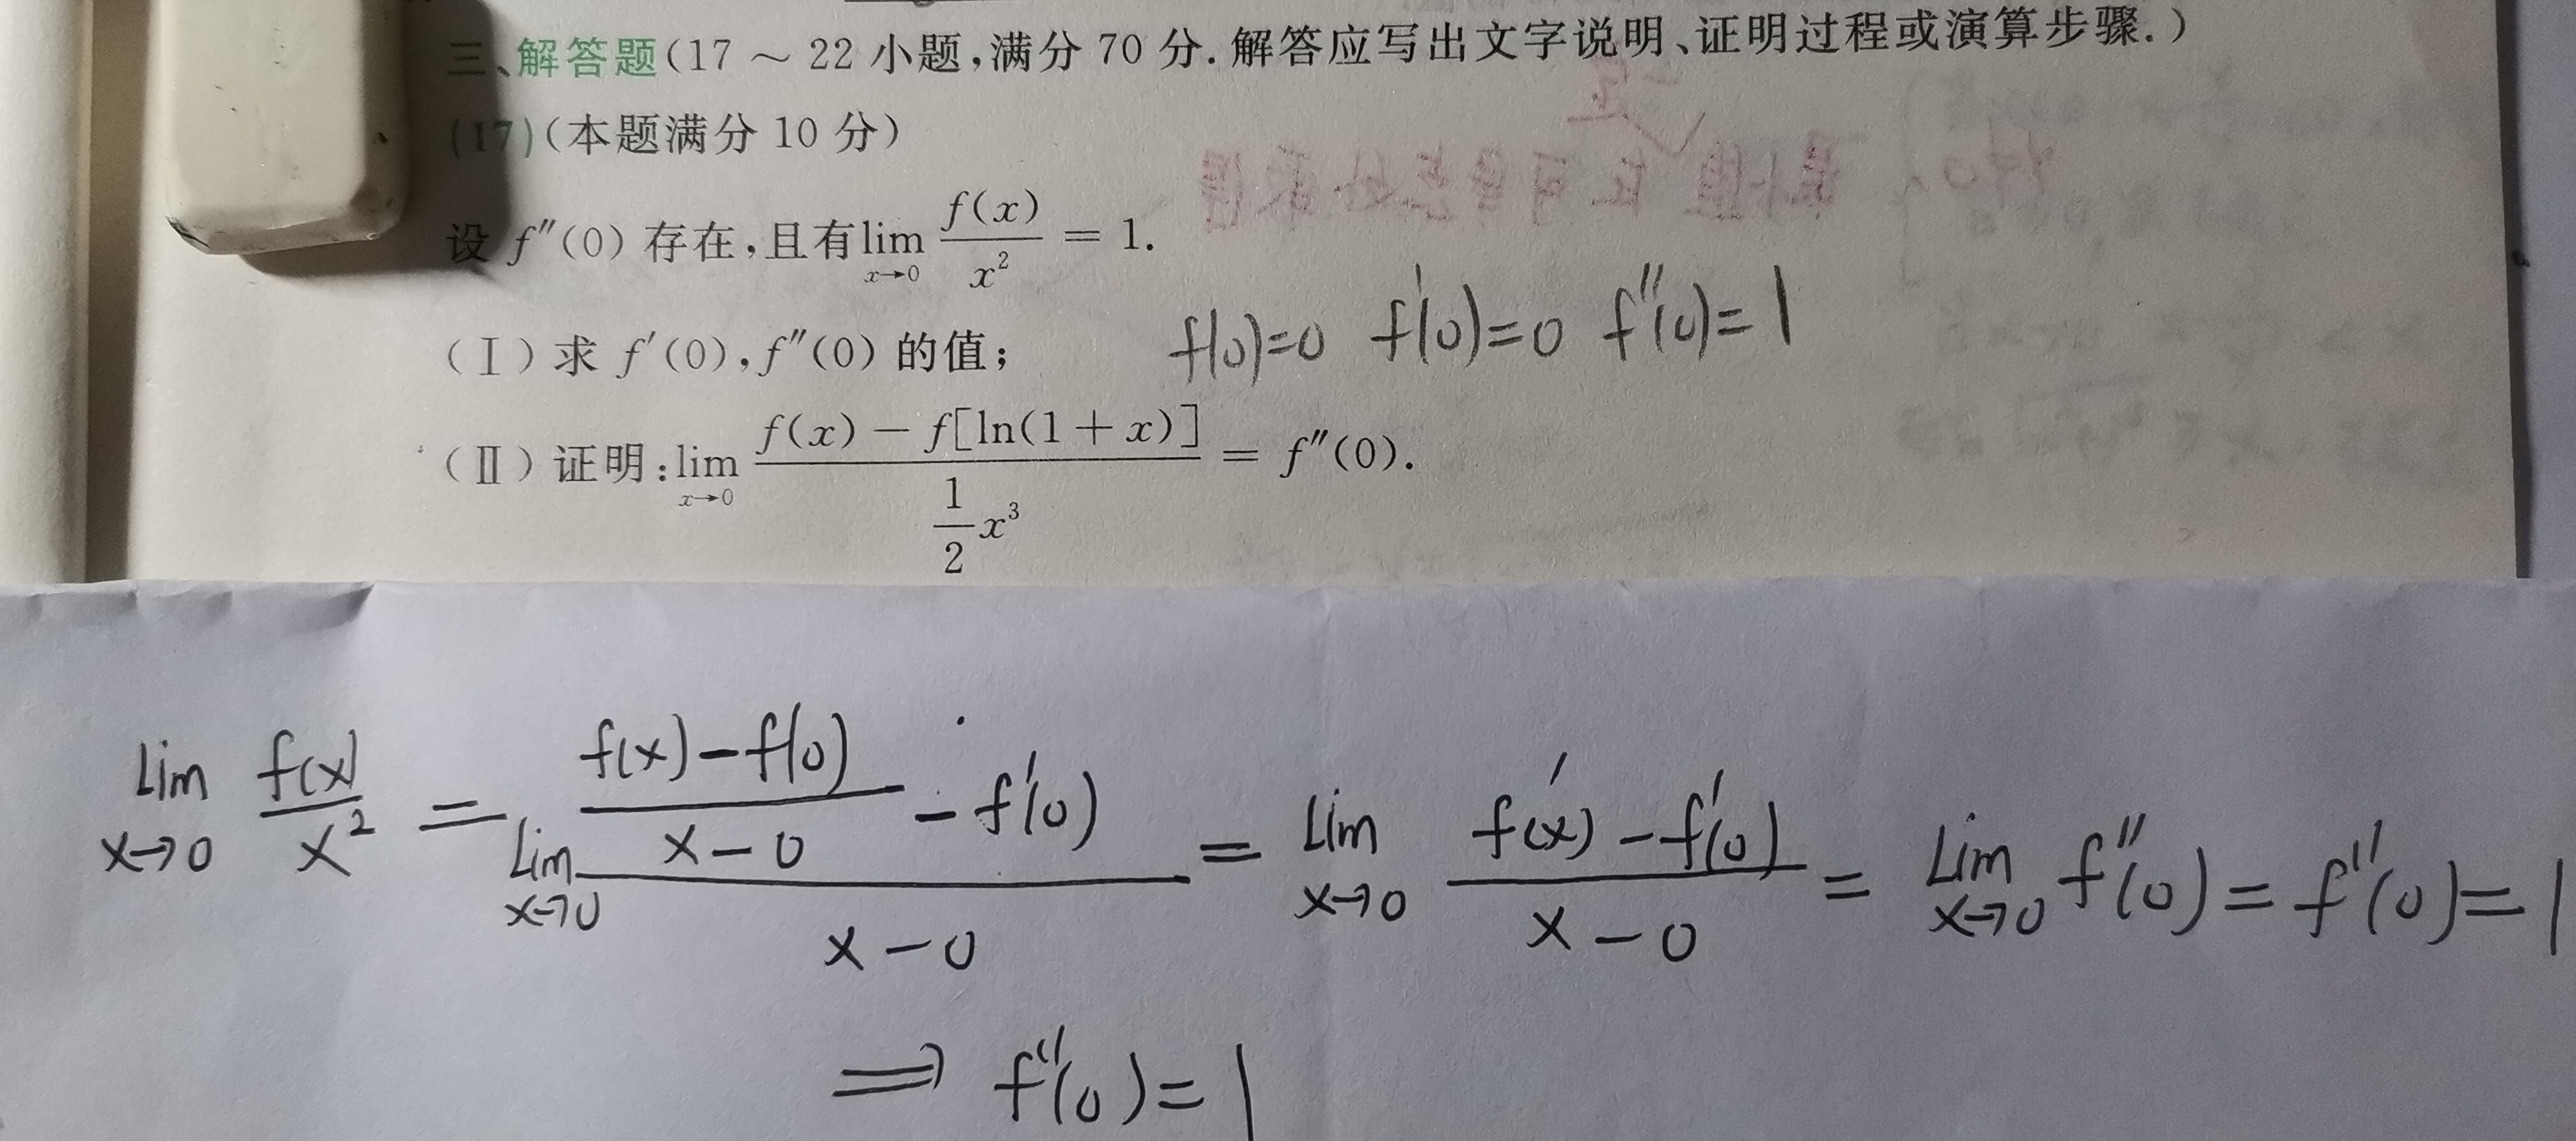 三、解答题(17 ~ 22 小题,满分 70 分. 解答应写出文字说明、证明过程或演算步骤. )
(17)(本题满分 10 分)
设 f″(0) 存在,且有 lim_{x→0} f(x)/x² = 1.
(Ⅰ) 求 f′(0), f″(0) 的值;
f(0)=0 f′(0)=0 f″(0)=1
(Ⅱ) 证明: lim_{x→0} (f(x) − f[ln(1 + x)])/(1/2 x³) = f″(0).
lim_{x→0} f(x)/x² = lim_{x→0} ((f(x)−f(0))/(x−0) − f′(0))/(x−0) = lim_{x→0} (f′(x)−f′(0))/(x−0) = lim_{x→0} f″(0) = f″(0) = 1
⟹ f″(0)=1